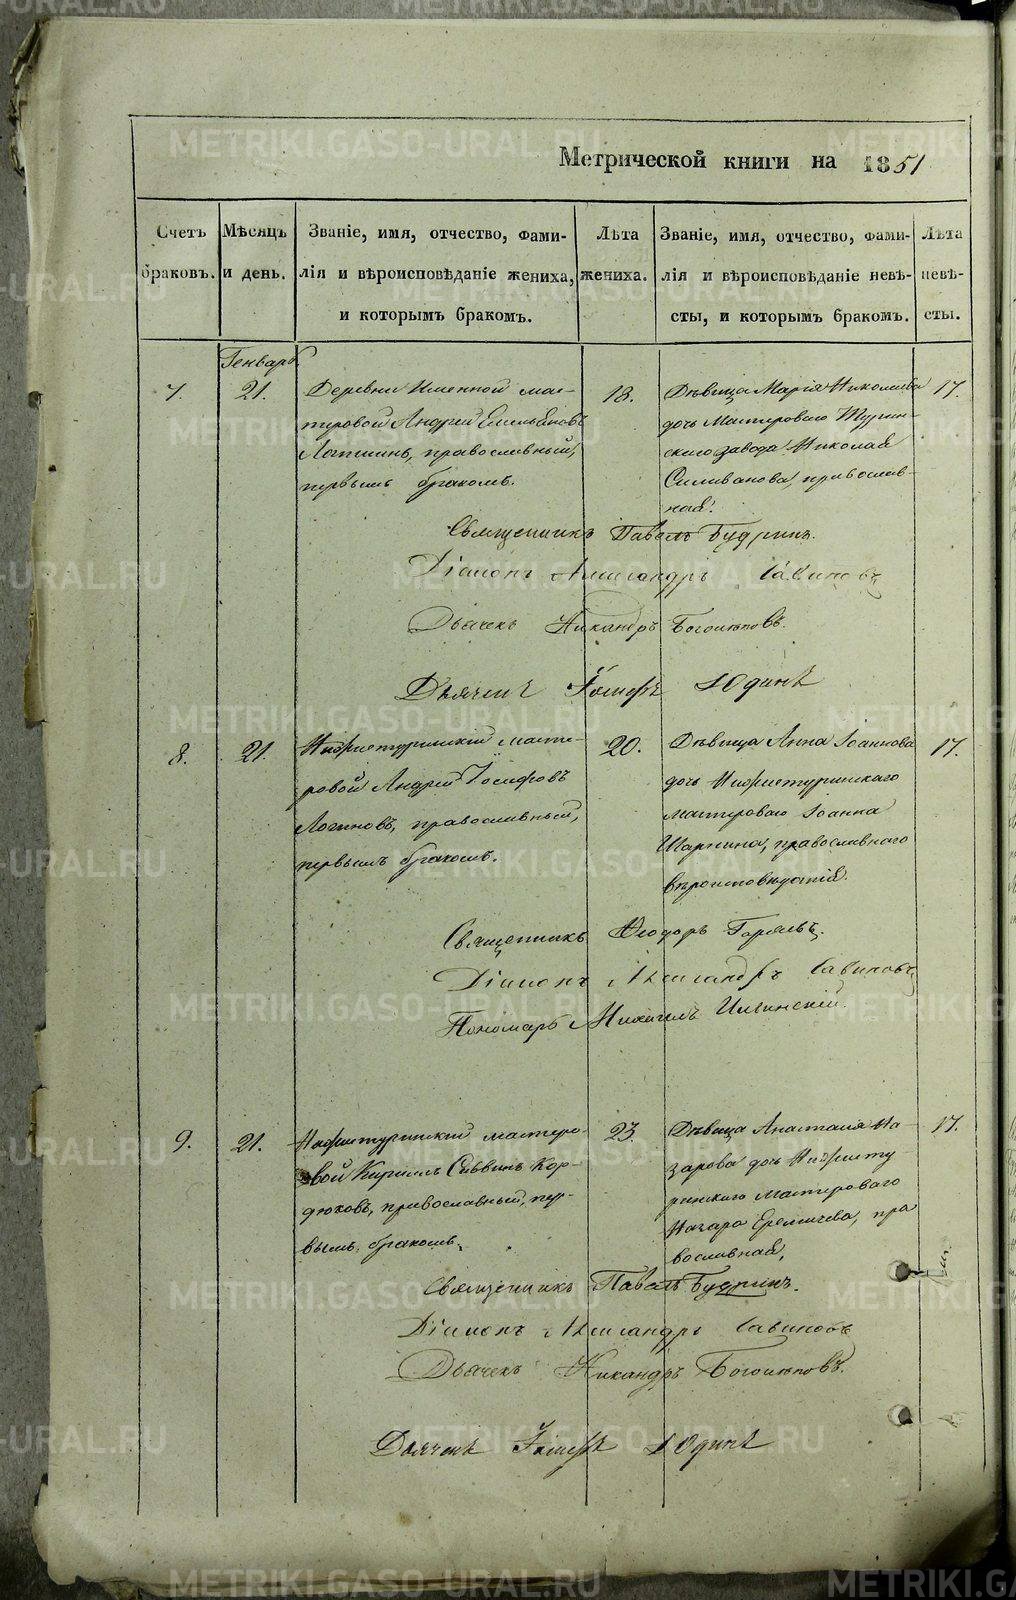 METRIKI.GASO-URAL.RU
Метрической книги на 1851
Счетъ браковъ.
Мѣсяцъ и день.
Званіе, имя, отчество, фами-
лія и вѣроисповѣданіе жениха,
и которымъ бракомъ.
Лѣта
жениха.
Званіе, имя, отчество, фами-
лія и вѣроисповѣданіе невѣ-
сты, и которымъ бракомъ.
Лѣта
невѣ-
сты.
Генварь
7.
21.
Деревни Именной мас-
теровой Андрей Емельяновъ
православный,
первымъ бракомъ.
18.
Дѣвица Марія Николаева
дочь Мастероваго Турин-
скаго завода Николая
Селиванова, православ-
ная.
17.
Священникъ Павелъ Будринъ.
Діаконъ Александръ Савиновъ
Дьячекъ Никандръ
Дьячекъ Іосифъ Юдинъ
8.
21.
Нижнетуринскій масте-
ровой Андрей Іосифовъ
Логиновъ, православный,
первымъ бракомъ.
20.
Дѣвица Анна Іоаннова
дочь Нижнетуринскаго
мастероваго Іоанна
православнаго
вѣроисповѣданія.
17.
Священникъ Ѳеодоръ
Діаконъ Александръ Савиновъ
Пономарь Михаилъ Ильинскій.
9.
21.
Нижнетуринскій мастеро-
вой Кириллъ Саввинъ Кор-
дюковъ, православный, пер-
вымъ бракомъ.
23.
Дѣвица Анастасія На-
зарова дочь Нижнету-
ринскаго Мастероваго
Назара православная,
17.
Священникъ Павелъ Будринъ.
Діаконъ Александръ Савиновъ
Дьячекъ Никандръ
Дьячекъ Іосифъ Юдинъ